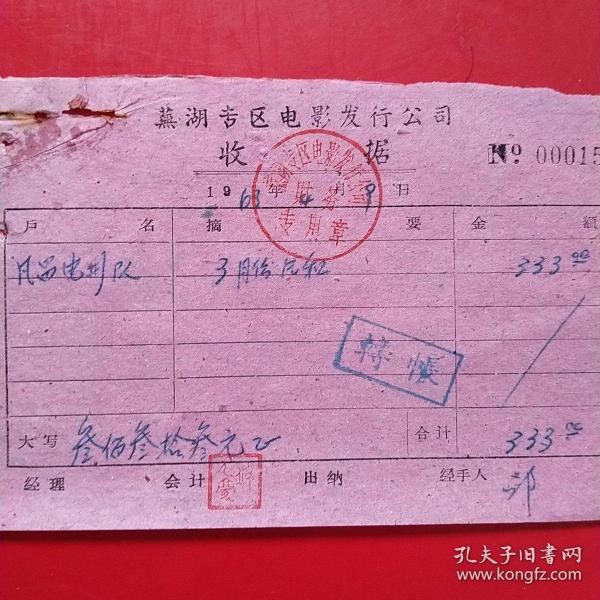 蕪湖专区电影发行公司
收据
Nº 00015
1963年4月9日
戶名 摘要 金額
电影队 3月份片租 333.00
轉帳
大写 叁佰叁拾叁元正 合计 333.00
经理 会计 出纳 经手人
蕪湖专区电影发行公司
财务
专用章
孔夫子旧书网
www.kongfz.com